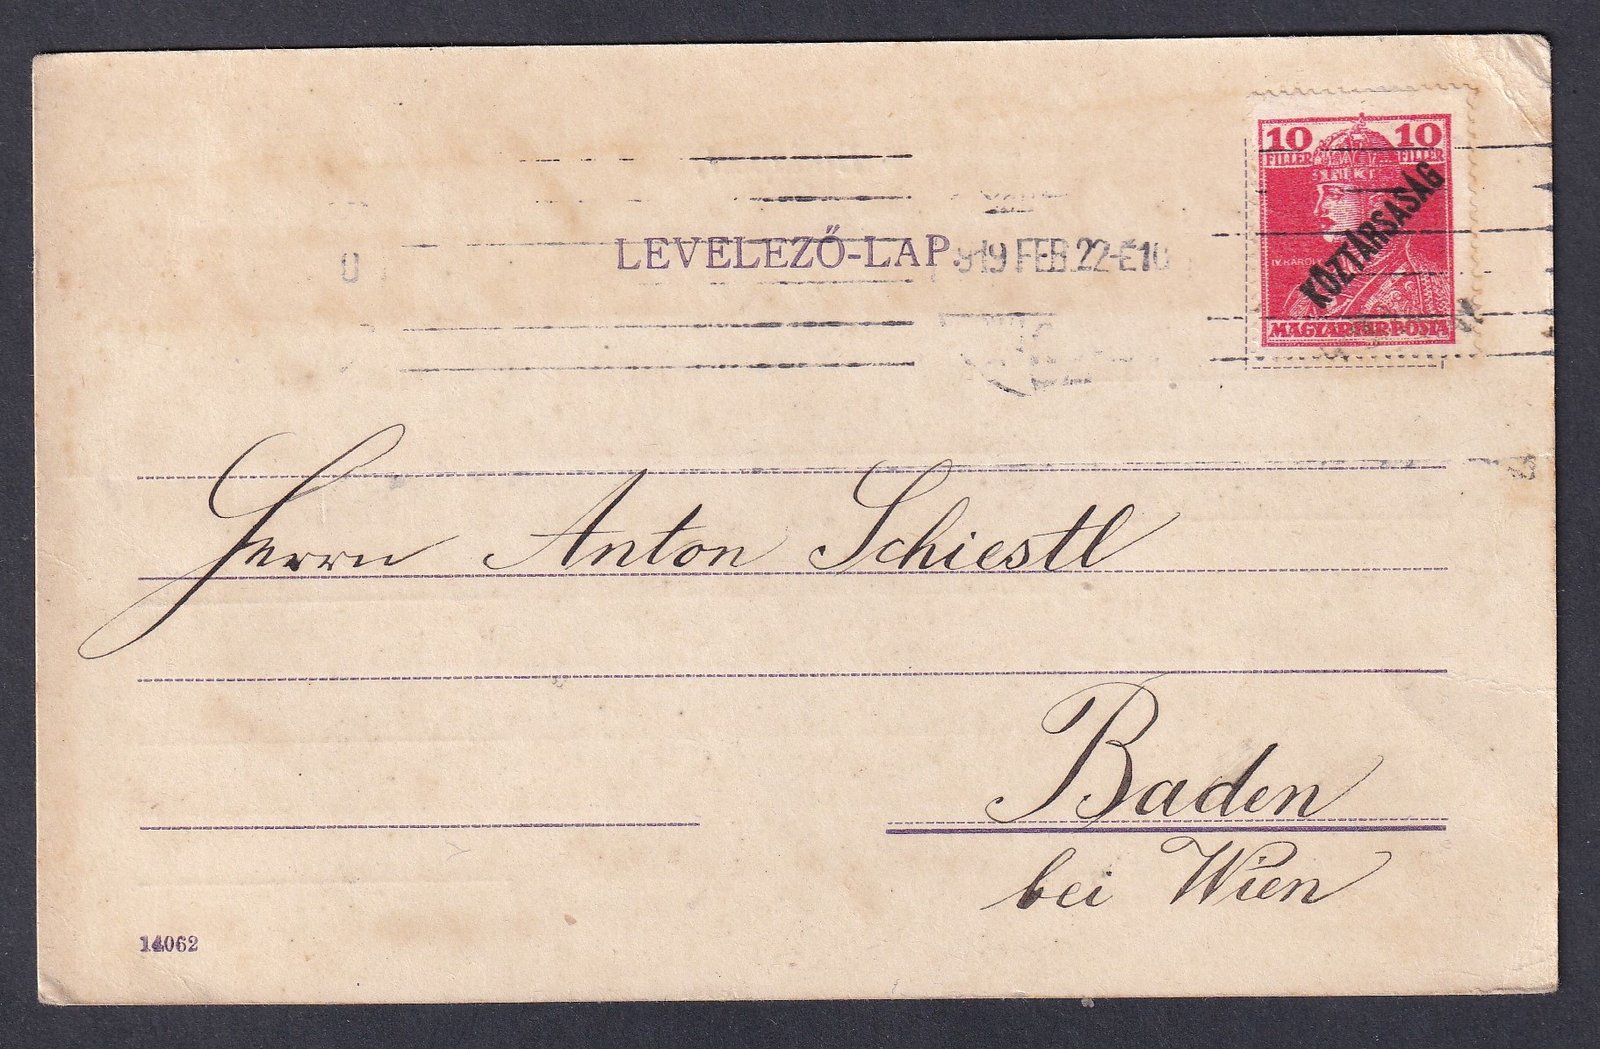 10 10
FILLÉR FILLÉR
KÖZTÁRSASÁG
IV. KÁROLY
MAGYAR KIR. POSTA
LEVELEZŐ-LAP.
919 FEB. 22-E10
Herrn Anton Schiestl
Baden
bei Wien
14062